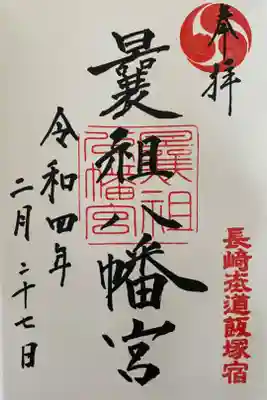 奉拝
曩祖八幡宮
令和四年
二月二十七日
長崎街道飯塚宿